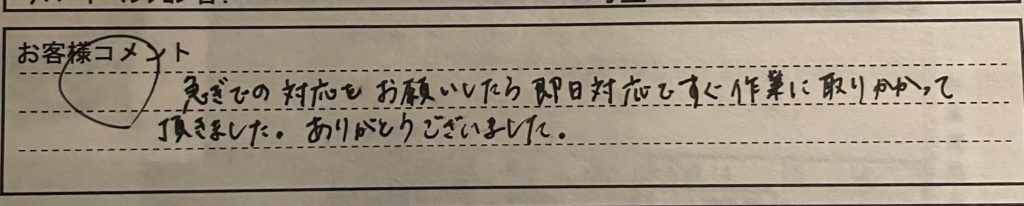 お客様コメント
急ぎでの対応をお願いしたら即日対応ですぐ作業に取りかかって
頂きました。ありがとうございました。